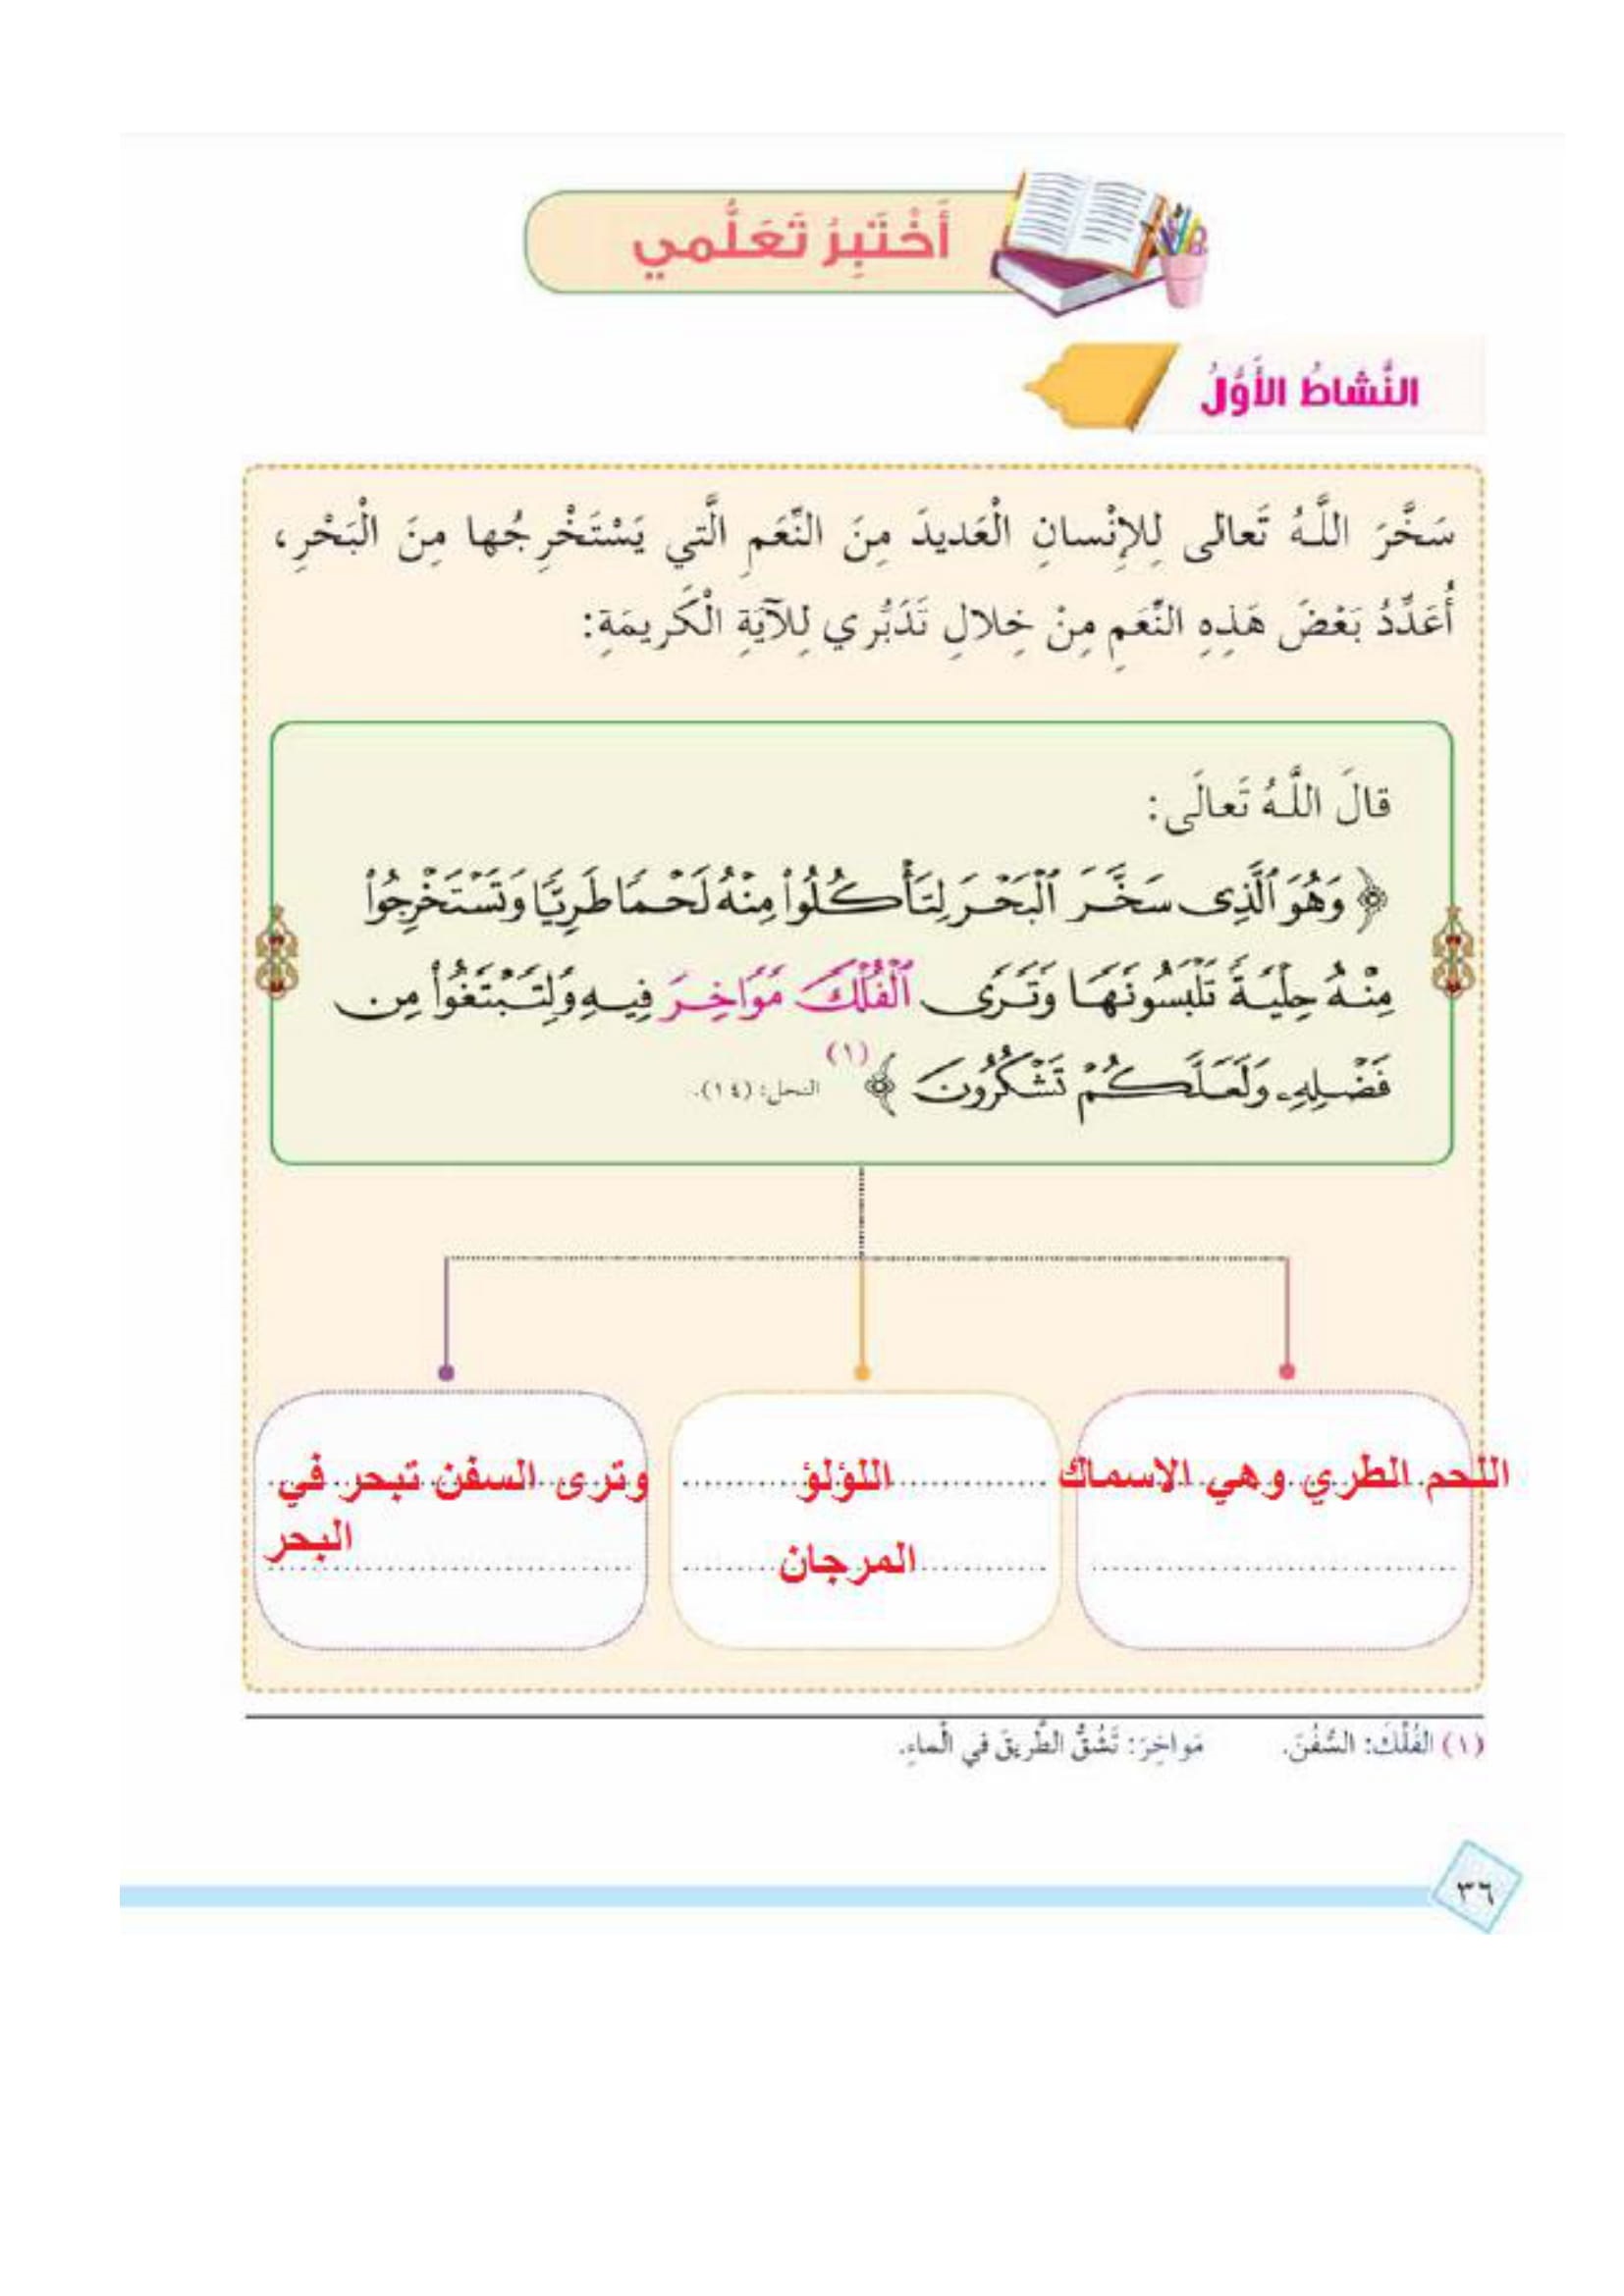 أَخْتَبِرُ تَعَلُّمي
النَّشاطُ الأَوَّلُ
سَخَّرَ اللَّهُ تَعالى لِلإِنْسانِ الْعَديدَ مِنَ النِّعَمِ الَّتي يَسْتَخْرِجُها مِنَ الْبَحْرِ،
أُعَدِّدُ بَعْضَ هَذِهِ النِّعَمِ مِنْ خِلالِ تَدَبُّري لِلآيَةِ الْكَريمَةِ:
قالَ اللَّهُ تَعالَى:
﴿ وَهُوَ ٱلَّذِى سَخَّرَ ٱلْبَحْرَ لِتَأْكُلُوا۟ مِنْهُ لَحْمًا طَرِيًّا وَتَسْتَخْرِجُوا۟
مِنْهُ حِلْيَةً تَلْبَسُونَهَا وَتَرَى ٱلْفُلْكَ مَوَاخِرَ فِيهِ وَلِتَبْتَغُوا۟ مِن
فَضْلِهِۦ وَلَعَلَّكُمْ تَشْكُرُونَ ﴾ (١) النحل: (١٤).
اللحم الطري وهي الاسماك
اللؤلؤ
المرجان
وترى السفن تبحر في
البحر
(١) الفُلْكَ: السُّفُنَ. مَواخِرَ: تَشُقُّ الطَّريقَ في الْماءِ.
٣٦